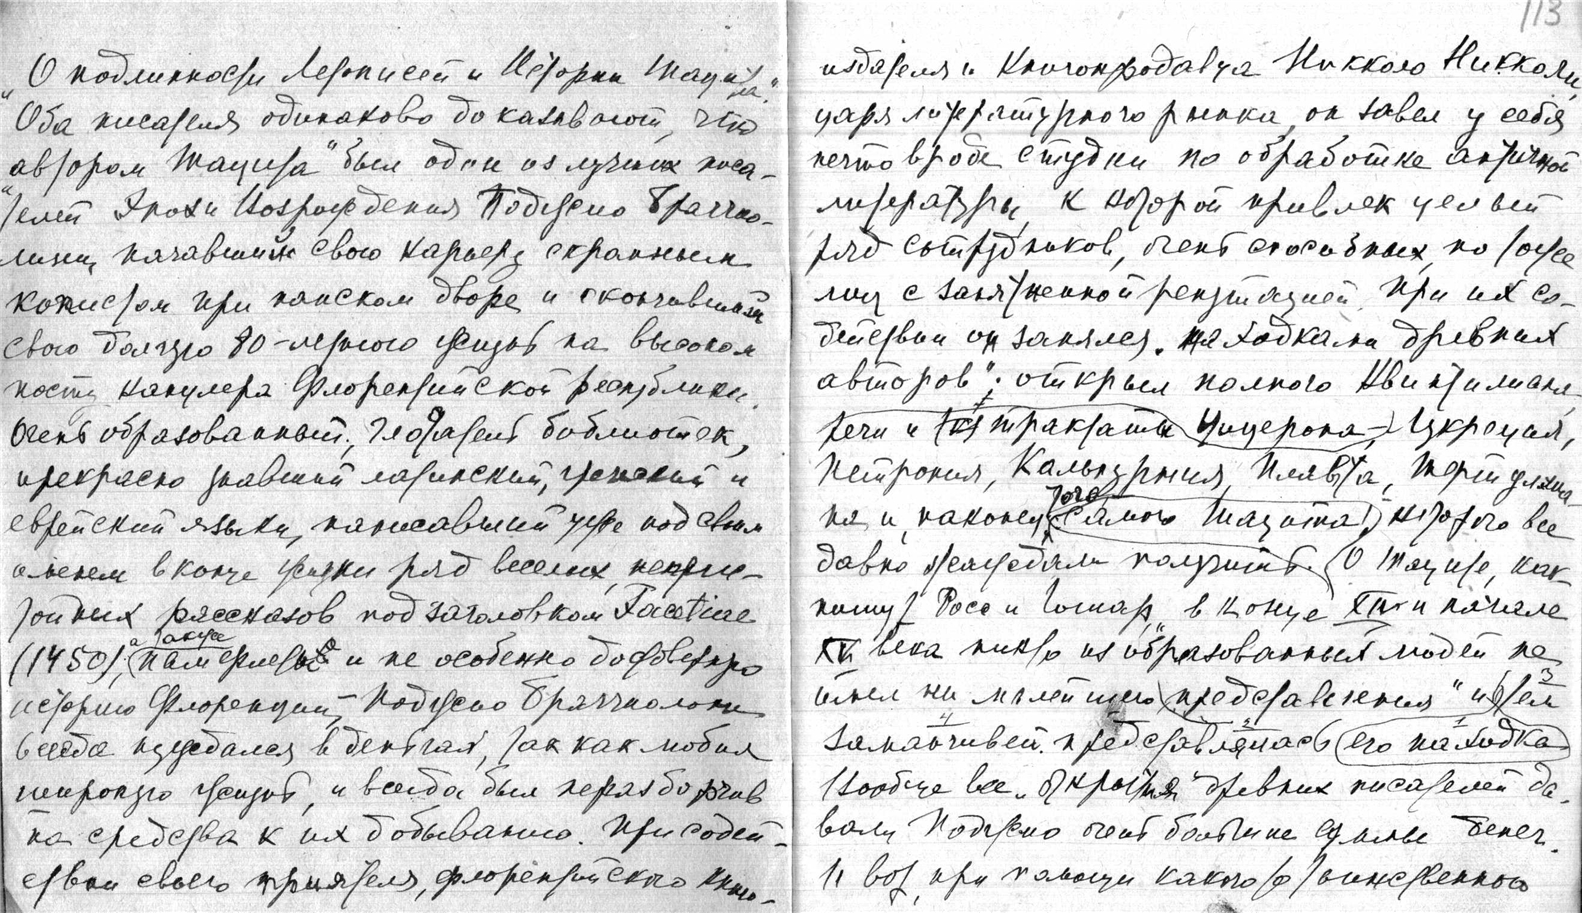 „О подлинности Летописей и Истории Тацита“.
Оба писателя одинаково доказывают, что
автором „Тацита“ был один из лучших писа-
телей Эпохи Возрождения Поджио Браччио-
лини, начавший свою карьеру скромным
копиистом при папском дворе и окончивший
свою долгую 80-летнюю жизнь на высоком
посту канцлера Флорентийской республики.
Очень образованный, глотатель библиотек,
прекрасно знавший латинский, греческий и
еврейский языки, написавший уже под своим
именем в конце жизни ряд веселых, непри-
стойных рассказов под заголовком Facetiae
(1450), а также памфлетов и не особенно достоверную
историю Флоренции, – Поджио Браччиолини
всегда нуждался в деньгах, так как любил
широкую жизнь, и всегда был неразборчив
на средства к их добыванию. При содей-
ствии своего приятеля, флорентийского книго-
113
издателя и книгопродавца Никколо Никколи,
царя литературного рынка, он завел у себя
нечто вроде студии по обработке античной
литературы, к которой привлек целый
ряд сотрудников, очень способных, но тоже
лиц с запятнанной репутацией. При их со-
действии он занялся „находками древних
авторов“: открыл полного Квинтилиана,
речи и трактаты Цицерона, Лукреция,
Петрония, Кальпурния, Плавта, Тертулиа-
на и, наконец, того самого Тацита, которого все
давно жаждали получить. О Таците, как
пишут Росс и Гошар, в конце XIV и начале
XV века „никто из образованных людей не
имел ни малейшего представления“ и тем
заманчивей представлялась его находка
Вообще все „открытия“ древних писателей да-
вали Поджио очень большие суммы денег.
И вот, при помощи какого то таинственного